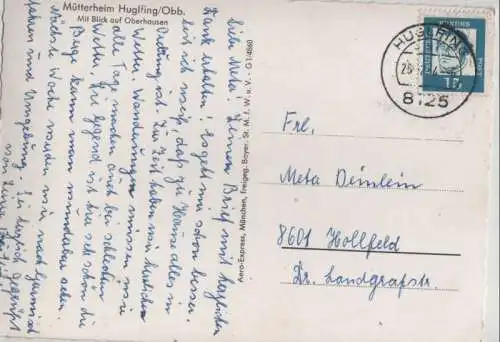 Mütterheim Huglfing/Obb.
Mit Blick auf Oberhausen
Liebe Meta! Deinen Brief mit herzlichem
Dank erhalten! Es geht mir schon besser
seit ich weiß, daß zu Hause alles in
Ordnung ist. Zur Zeit haben wir herrliches
Wetter. Wanderungen müssen wir
alle Tage machen auch bei schlechtem
Wetter. Die Gegend ist hier sehr schön die
Berge kann man wunderbar sehen.
Nächste Woche werden wir nach Garmisch
fahren und Umgebung. Sei herzlich gegrüßt
von
Aero-Express, München, Freigeg. Bayer. St. M. f. W. u. V. - G 1/4860
HUGLFING
8125
DEUTSCHE
BUNDES
POST
15
Frl.
Meta Deinlein
8601 Hollfeld
Dr. Landgrafstr.